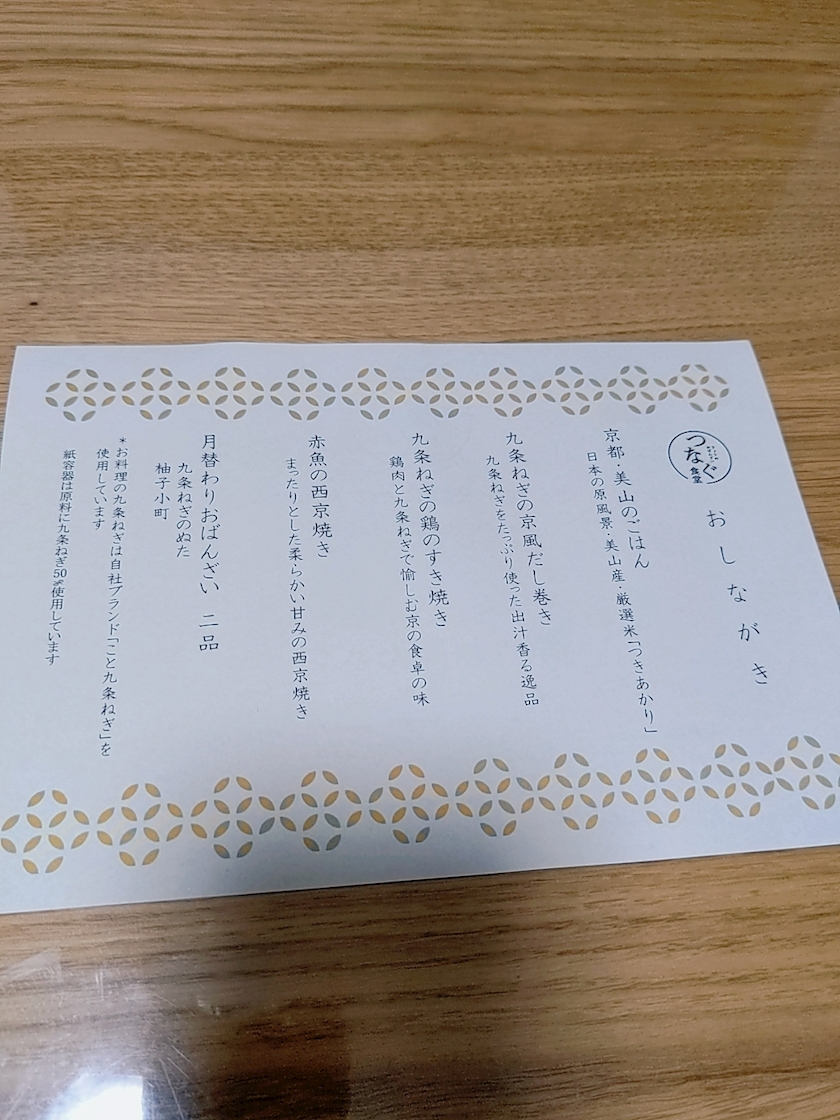 つなぐ
食堂
おしながき
京都・美山のごはん
日本の原風景・美山産・厳選米「つきあかり」
九条ねぎの京風だし巻き
九条ねぎをたっぷり使った出汁香る逸品
九条ねぎの鶏のすき焼き
鶏肉と九条ねぎで愉しむ京の食卓の味
赤魚の西京焼き
まったりとした柔らかい甘みの西京焼き
月替わりおばんざい 二品
九条ねぎのぬた
柚子小町
*お料理の九条ねぎは自社ブランド「こと九条ねぎ」を
使用しています
紙容器は原料に九条ねぎ50%使用しています